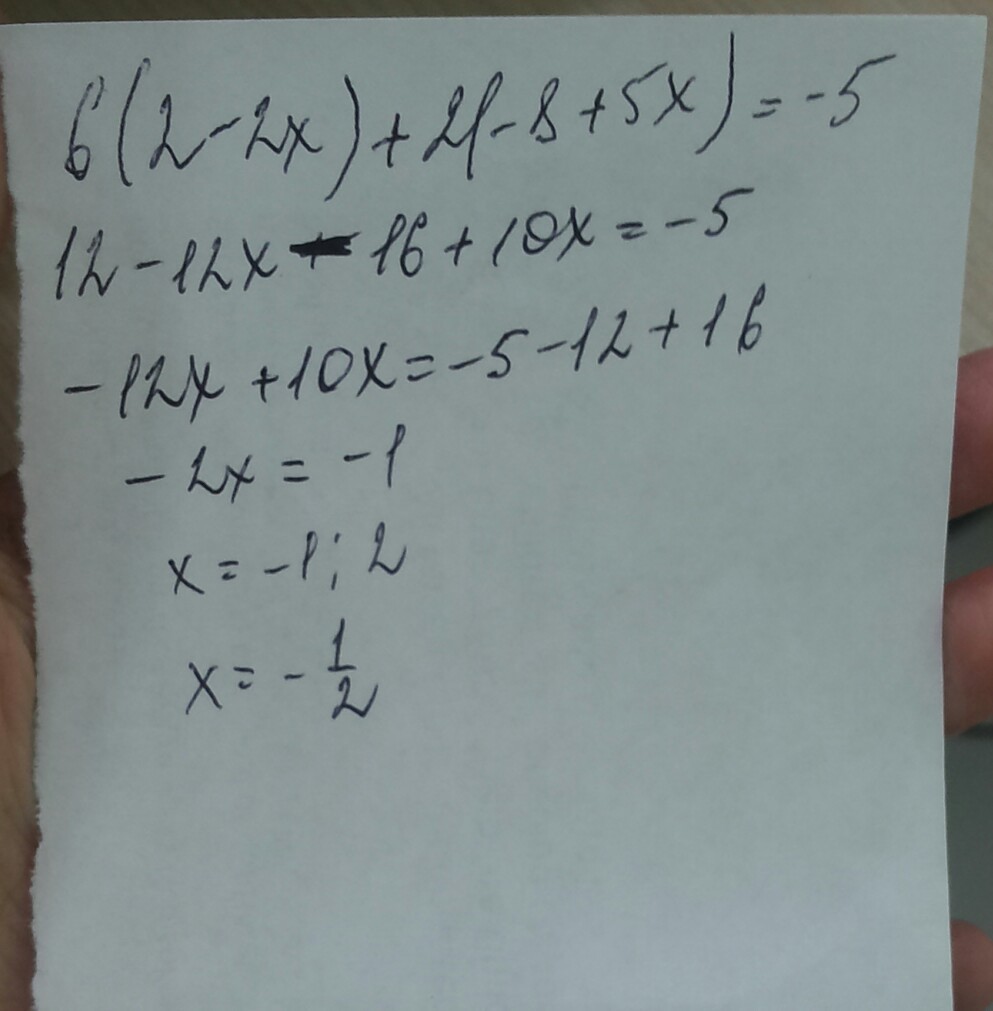 6(2-2x)+2(-8+5x)=-5
12-12x-16+10x=-5
-12x+10x=-5-12+16
-2x=-1
x=-1:2
x=-1/2